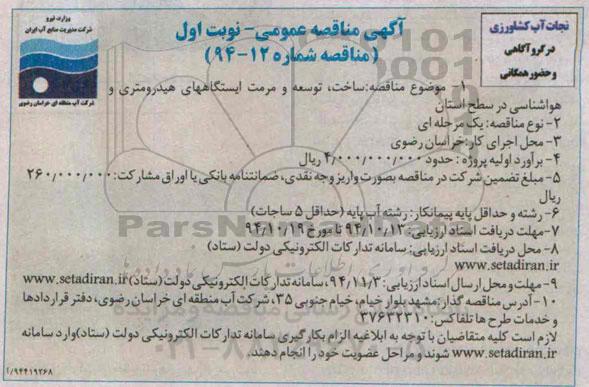 وزارت نیرو
شرکت مدیریت منابع آب ایران
شرکت آب منطقه ای خراسان رضوی
آگهی مناقصه عمومی- نوبت اول
(مناقصه شماره ۱۲-۹۴)
نجات آب کشاورزی
در گرو آگاهی
و حضور همگانی
۱- موضوع مناقصه:ساخت، توسعه و مرمت ایستگاههای هیدرومتری و
هواشناسی در سطح استان
۲- نوع مناقصه: یک مرحله ای
۳- محل اجرای کار: خراسان رضوی
۴- برآورد اولیه پروژه : حدود ۴/۰۰۰/۰۰۰/۰۰۰ ریال
۵- مبلغ تضمین شرکت در مناقصه بصورت واریز وجه نقدی، ضمانتنامه بانکی یا اوراق مشارکت: ۲۶۰/۰۰۰/۰۰۰
ریال
۶- رشته و حداقل پایه پیمانکار: رشته آب پایه (حداقل ۵ ساجات)
۷- مهلت دریافت اسناد ارزیابی: ۹۴/۱۰/۱۳ تا مورخ ۹۴/۱۰/۱۹
۸- محل دریافت اسناد ارزیابی: سامانه تدارکات الکترونیکی دولت (ستاد)
www.setadiran.ir
۹- مهلت و محل ارسال اسناد ارزیابی: ۹۴/۱۱/۳، سامانه تدارکات الکترونیکی دولت (ستاد) www.setadiran.ir
۱۰- آدرس مناقصه گذار: مشهد بلوار خیام، خیام جنوبی ۳۵، شرکت آب منطقه ای خراسان رضوی، دفتر قراردادها
و خدمات طرح ها تلفاکس: ۳۷۶۳۲۳۱۰
لازم است کلیه متقاضیان با توجه به ابلاغیه الزام بکارگیری سامانه تدارکات الکترونیکی دولت (ستاد) وارد سامانه
www.setadiran.ir شوند و مراحل عضویت خود را انجام دهند.
۹۴۴۱۹۲۶۸/آ
ParsNamadData